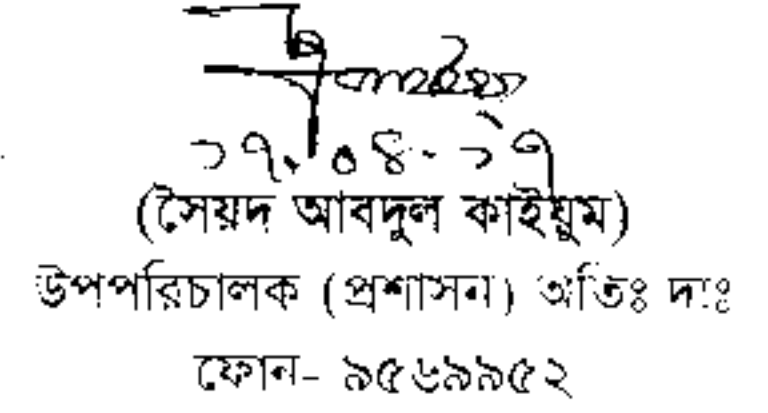 ১৭.০৪.১৭
(সৈয়দ আবদুল কাইয়ুম)
উপপরিচালক (প্রশাসন) অতিঃ দাঃ
ফোন- ৯৫৬৯৯৫২